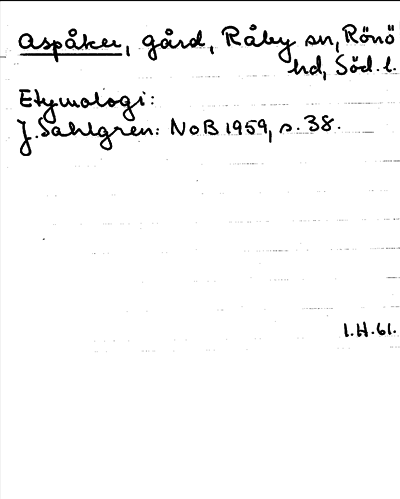 Aspåker, gård, Råby sn, Rönö
hd, Söd. l.
Etymologi:
J. Sahlgren: NoB 1959, s. 38.
I.H.61.